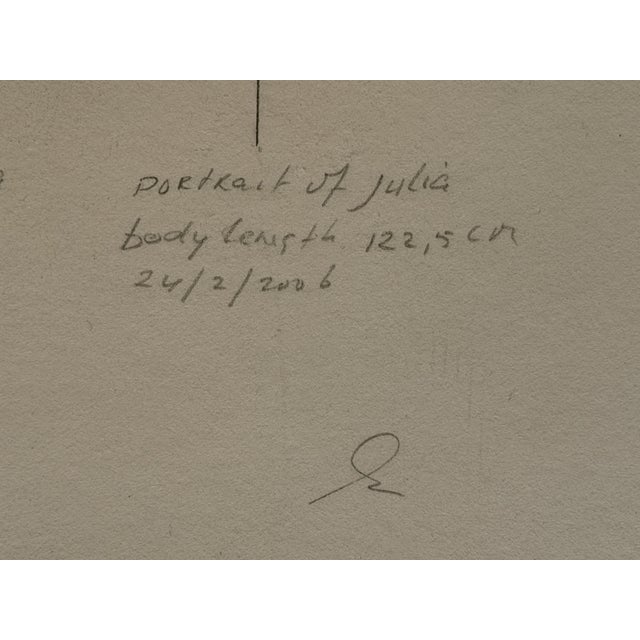 portrait of julia
body length 122,5 cm
24/2/2006